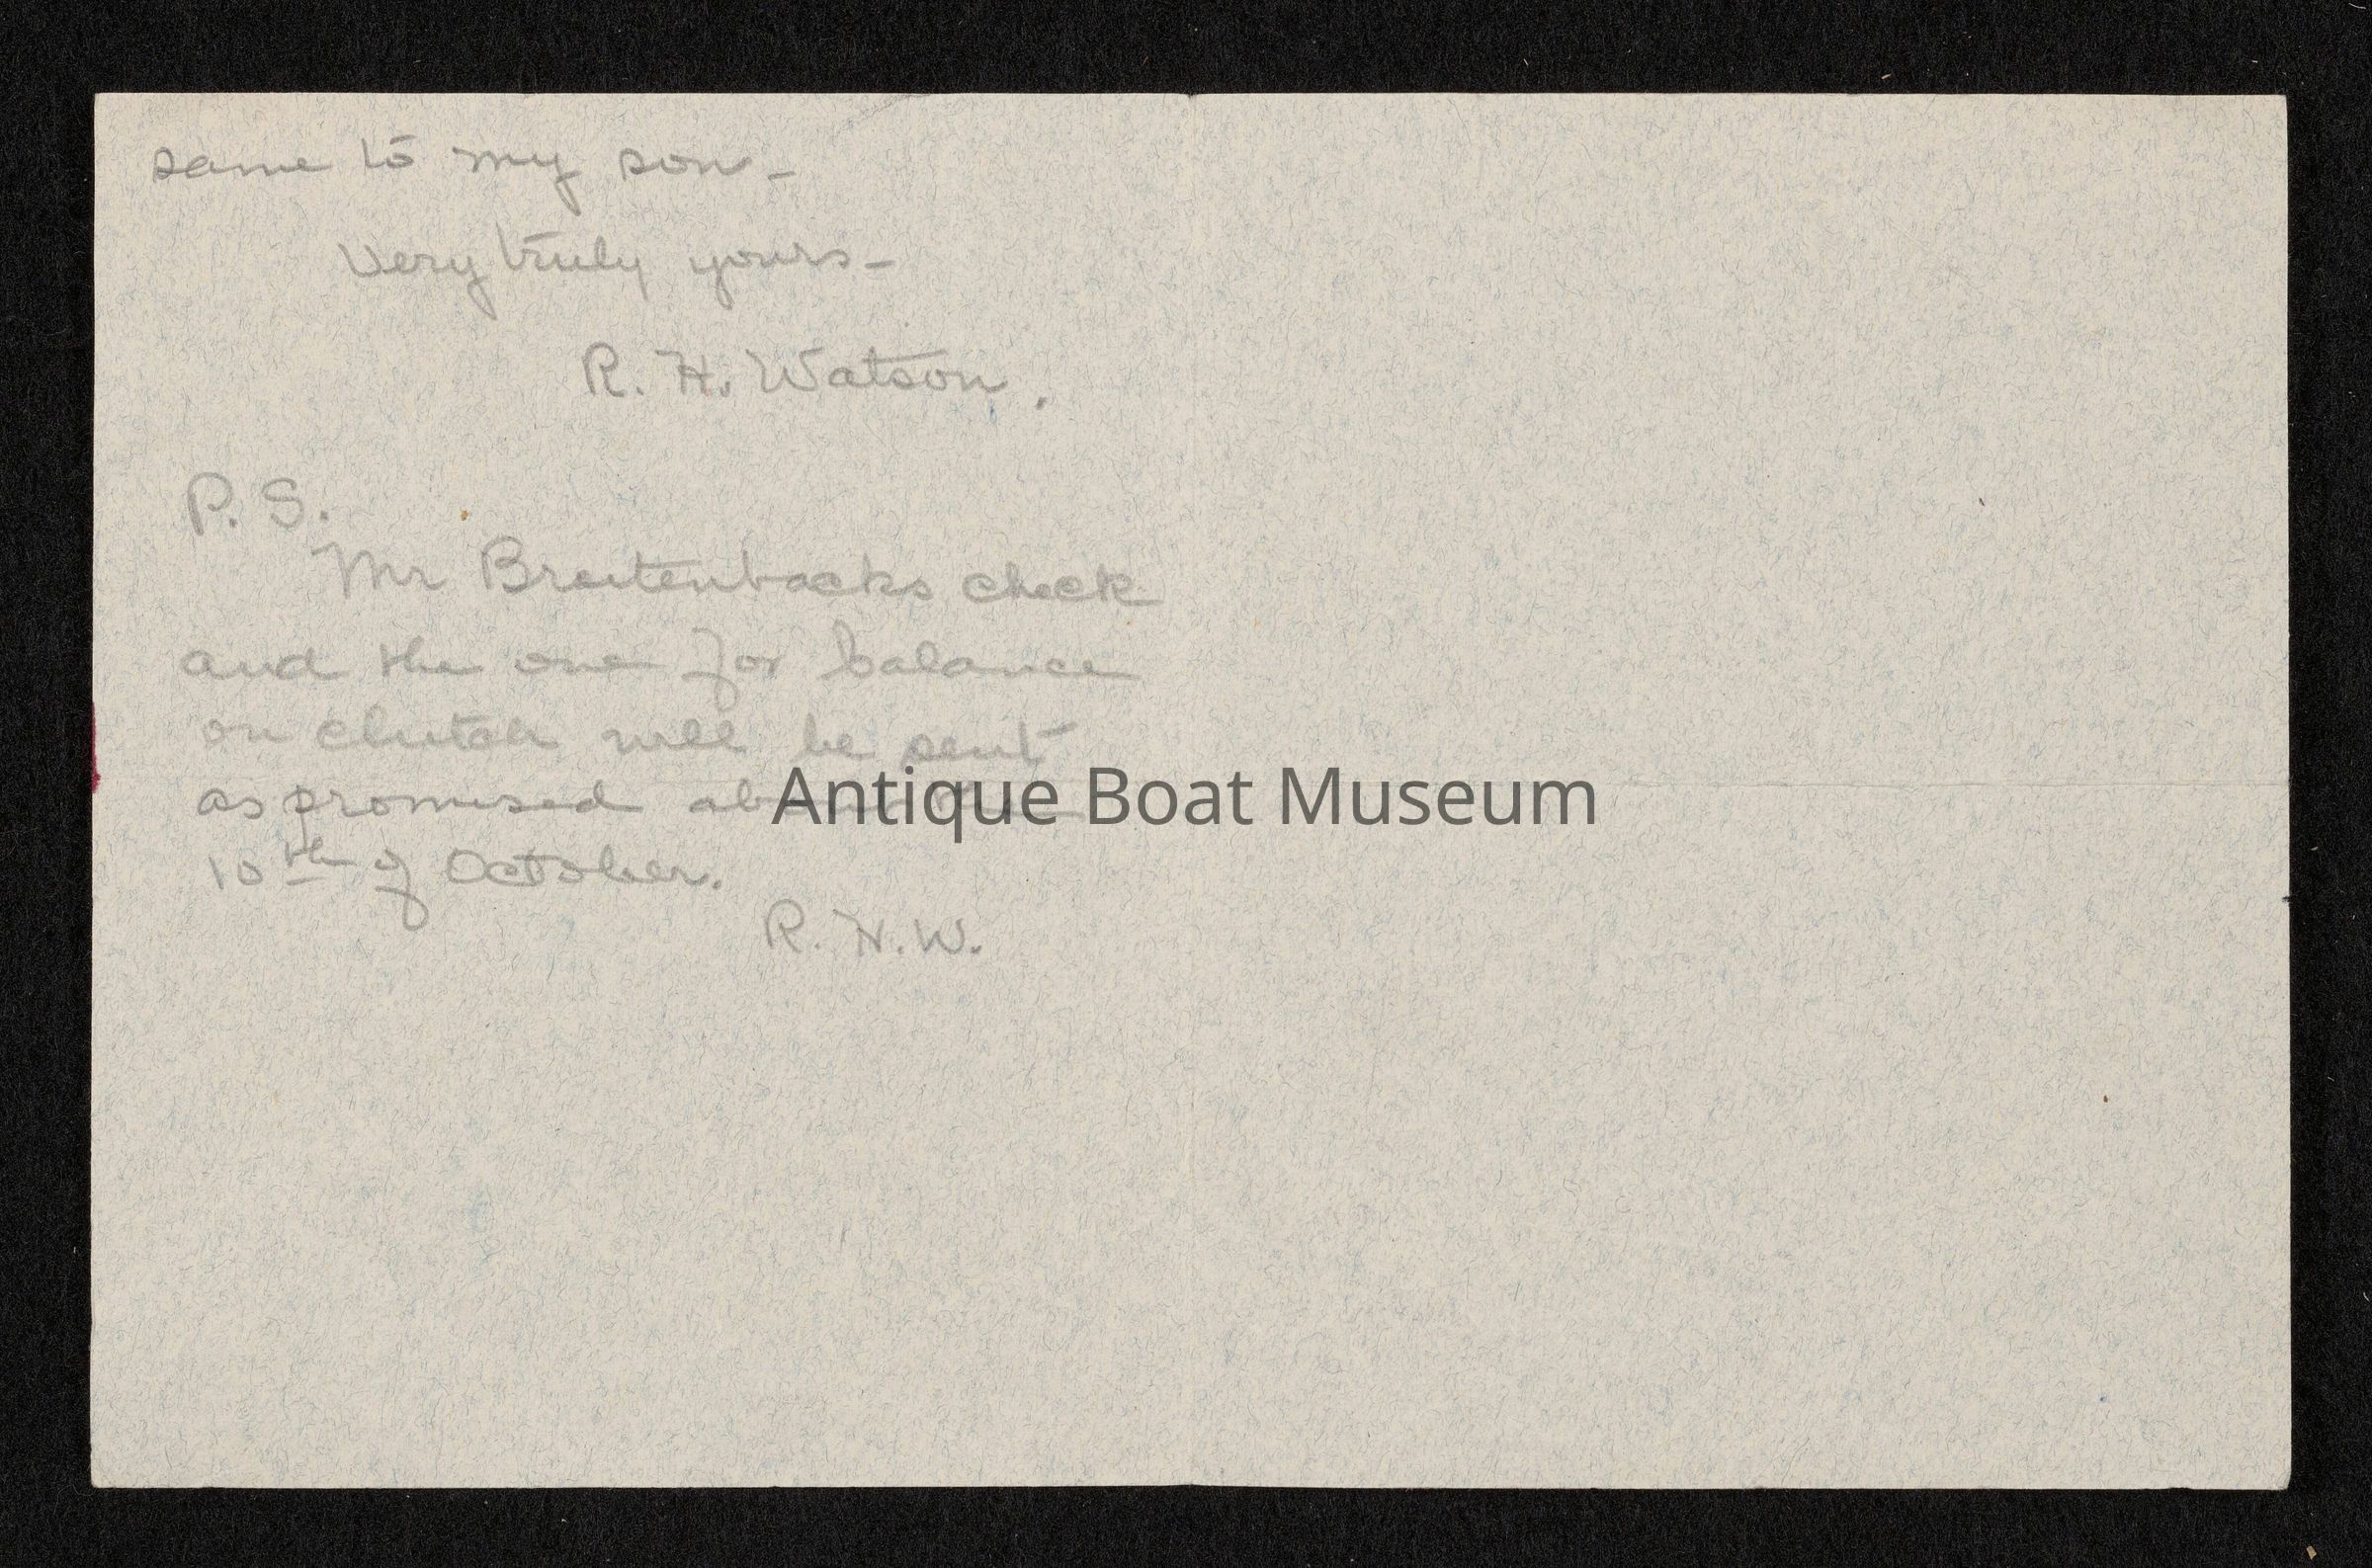 same to my son-
Very truly yours-
R. H. Watson.
P. S.
Mr Breitenbacks check
and the one for balance
on clutch will be sent
as promised about the
10th of October.
R. H. W.
Antique Boat Museum